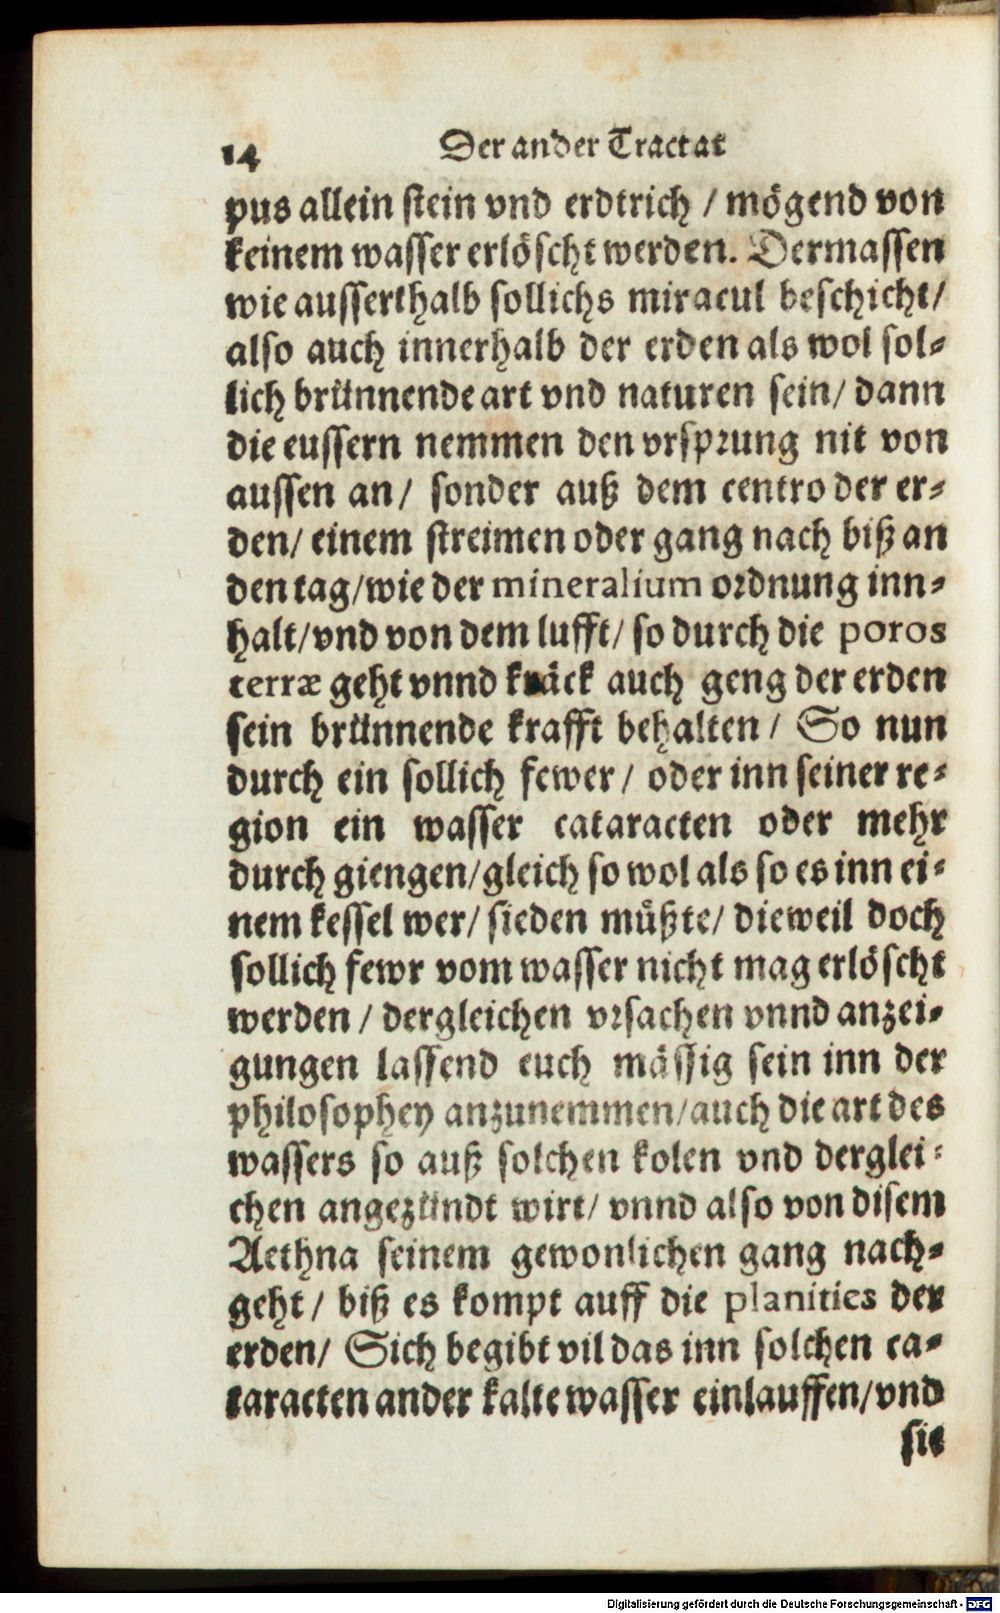 14 Der ander Tractat
pus allein stein vnd erdtrich / mögend von
keinem wasser erlöscht werden. Dermassen
wie ausserthalb sollichs miracul beschicht/
also auch innerhalb der erden als wol sol-
lich brünnende art vnd naturen sein/ dann
die eussern nemmen den vrsprung nit von
aussen an/ sonder auß dem centro der er-
den/ einem streimen oder gang nach biß an
den tag/wie der mineralium ordnung inn-
halt/vnd von dem lufft/ so durch die poros
terræ geht vnnd kräck auch geng der erden
sein brünnende krafft behalten/ So nun
durch ein sollich fewer/ oder inn seiner re-
gion ein wasser cataracten oder mehr
durch giengen/gleich so wol als so es inn ei-
nem kessel wer/ sieden müßte/ dieweil doch
sollich fewr vom wasser nicht mag erlöscht
werden / dergleichen vrsachen vnnd anzei-
gungen lassend euch mässig sein inn der
philosophey anzunemmen/auch die art des
wassers so auß solchen kolen vnd derglei-
chen angezündt wirt/ vnnd also von disem
Aethna seinem gewonlichen gang nach-
geht / biß es kompt auff die planities der
erden/ Sich begibt vil das inn solchen ca-
taracten ander kalte wasser einlauffen/vnd
sie
Digitalisierung gefördert durch die Deutsche Forschungsgemeinschaft - DFG